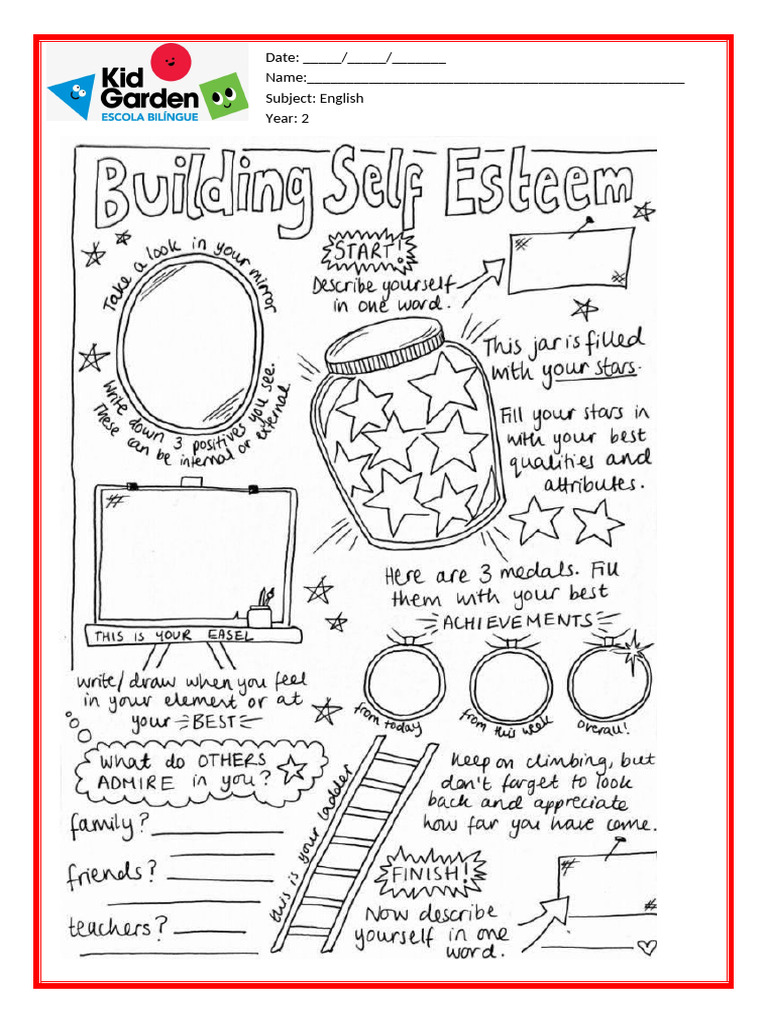 Kid
Garden
ESCOLA BILÍNGUE
Date: _____/_____/_______
Name:__________________________________________________
Subject: English
Year: 2
Building Self Esteem
Take a look in your mirror
Write down 3 positives you see.
These can be internal or external.
START!
Describe yourself
in one word.
This jar is filled
with your stars.
Fill your stars in
with your best
qualities and
attributes.
THIS IS YOUR EASEL
Write/draw when you feel
in your element or at
your BEST
Here are 3 medals. Fill
them with your best
ACHIEVEMENTS
from today
from this week
overall!
What do OTHERS
ADMIRE in you?
family?
friends?
teachers?
this is your ladder
Keep on climbing, but
don't forget to look
back and appreciate
how far you have come.
FINISH!
Now describe
yourself in one
word.